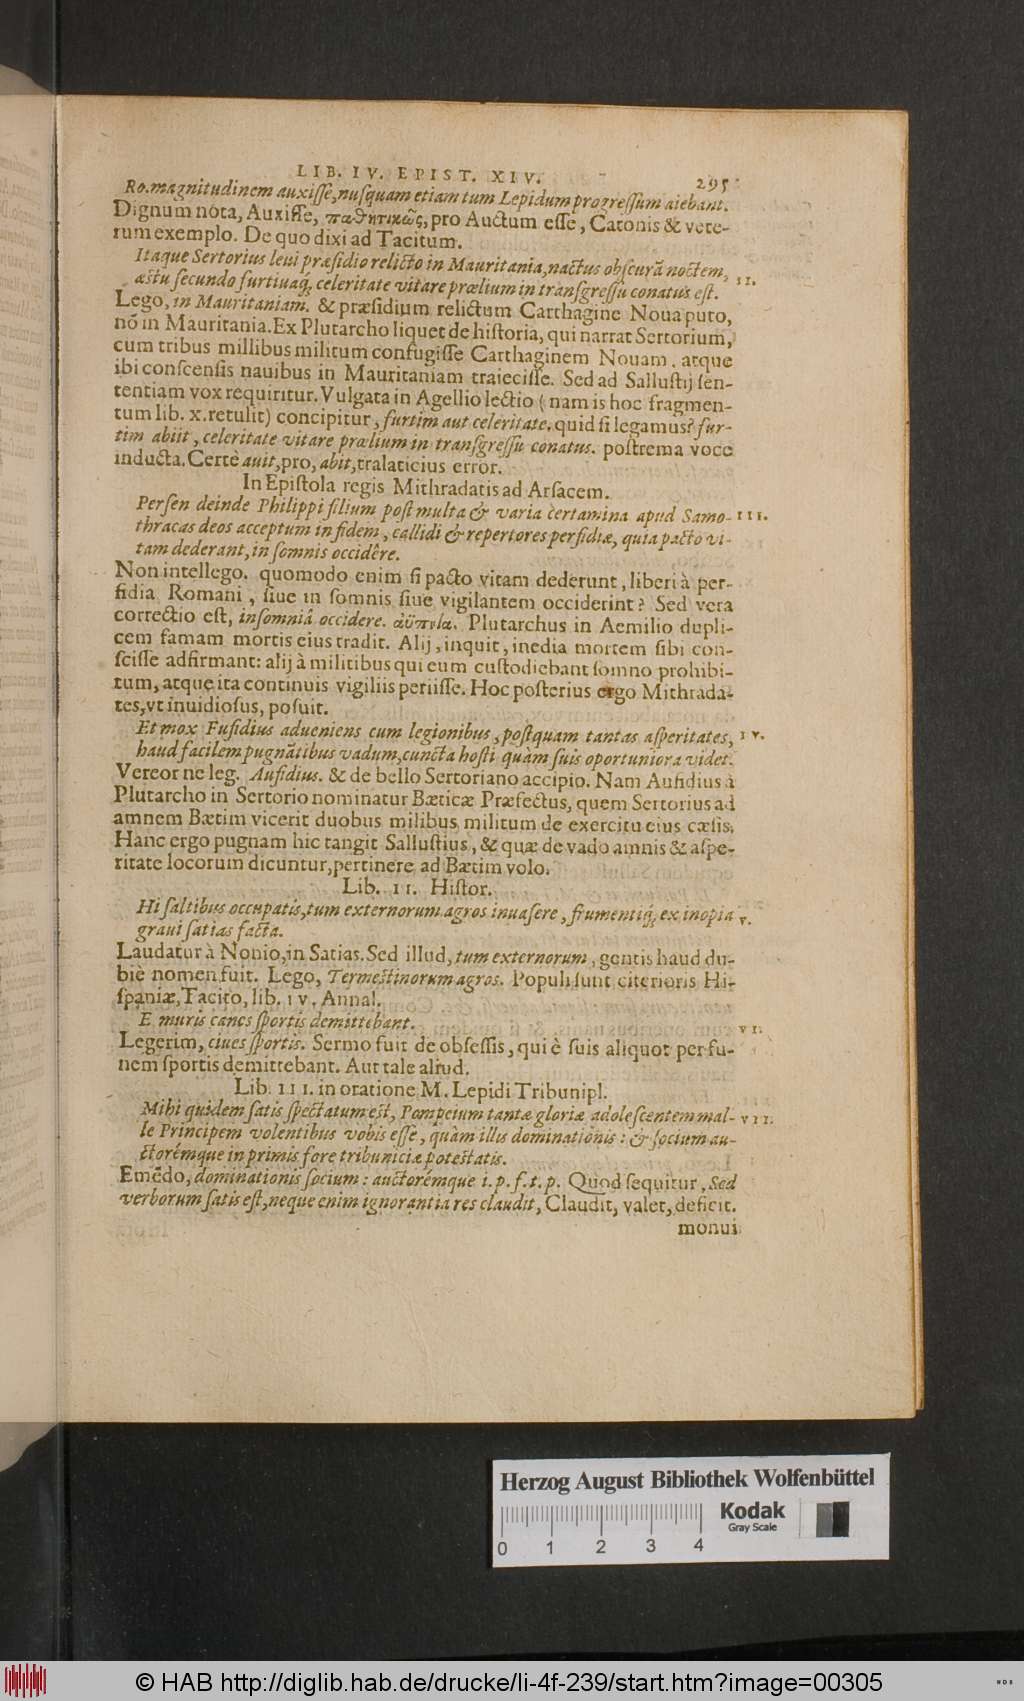 LIB. IV. EPIST. XIV. 295
Ro. magnitudinem auxiſſe, nuſquam etiam tum Lepidum progreſſum aiebant.
Dignum nota, Auxiſſe, παθητικῶς, pro Auctum eſſe, Catonis & vete-
rum exemplo. De quo dixi ad Tacitum.
Itaque Sertorius leui præſidio relicto in Mauritania, nactus obſcurā noctem, II.
æſtu ſecundo furtiuaq́; celeritate vitare prælium in tranſgreſſu conatus eſt.
Lego, in Mauritaniam. & præſidium relictum Carthagine Noua puto,
nō in Mauritania. Ex Plutarcho liquet de hiſtoria, qui narrat Sertorium,
cum tribus millibus militum confugiſſe Carthaginem Nouam, atque
ibi conſcenſis nauibus in Mauritaniam traieciſſe. Sed ad Salluſtij ſen-
tentiam vox requiritur. Vulgata in Agellio lectio (nam is hoc fragmen-
tum lib. x. retulit) concipitur, furtim aut celeritate. quid ſi legamus? fur-
tim abiit, celeritate vitare prælium in tranſgreſſu conatus. poſtrema voce
inducta. Certè auit, pro, abit, tralaticius error.
In Epiſtola regis Mithradatis ad Arſacem.
Perſen deinde Philippi filium poſt multa & varia certamina apud Samo- III.
thracas deos acceptum in fidem, callidi & repertores perfidiæ, quia pacto vi-
tam dederant, in ſomnis occidêre.
Non intellego. quomodo enim ſi pacto vitam dederunt, liberi à per-
fidia Romani, ſiue in ſomnis ſiue vigilantem occiderint? Sed vera
correctio eſt, inſomniâ occidere. ἀϋπνίᾳ. Plutarchus in Aemilio dupli-
cem famam mortis eius tradit. Alij, inquit, inedia mortem ſibi con-
ſciſſe adfirmant: alij à militibus qui eum cuſtodiebant ſomno prohibi-
tum, atque ita continuis vigiliis periiſſe. Hoc poſterius ergo Mithrada-
tes, vt inuidioſus, poſuit.
Et mox Fufidius adueniens cum legionibus, poſtquam tantas aſperitates, IV.
haud facilem pugnātibus vadum, cuncta hoſti quàm ſuis oportuniora videt.
Vereor ne leg. Aufidius. & de bello Sertoriano accipio. Nam Aufidius à
Plutarcho in Sertorio nominatur Bæticæ Præfectus, quem Sertorius ad
amnem Bætim vicerit duobus milibus militum de exercitu eius cæſis.
Hanc ergo pugnam hic tangit Salluſtius, & quæ de vado amnis & aſpe-
ritate locorum dicuntur, pertinere ad Bætim volo.
Lib. II. Hiſtor.
Hi ſaltibus occupatis, tum externorum agros inuaſere, frumentiq́; ex inopia V.
graui ſatias facta.
Laudatur à Nonio, in Satias. Sed illud, tum externorum, gentis haud du-
biè nomen fuit. Lego, Termeſtinorum agros. Populi ſunt citerioris Hi-
ſpaniæ, Tacito, lib. IV. Annal.
E muris canes ſportis demittebant. VI.
Legerim, ciues ſportis. Sermo fuit de obſeſſis, qui è ſuis aliquot per fu-
nem ſportis demittebant. Aut tale aliud.
Lib. III. in oratione M. Lepidi Tribuni pl.
Mihi quidem ſatis ſpectatum eſt, Pompeium tantæ gloriæ adoleſcentem mal- VII.
le Principem volentibus vobis eſſe, quàm illis dominationis: & ſocium au-
ctorémque in primis fore tribuniciæ poteſtatis.
Emēdo, dominationis ſocium: auctorémque i. p. f. t. p. Quod ſequitur, Sed
verborum ſatis eſt, neque enim ignorantia res claudit, Claudit, valet, deficit.
monui
Herzog August Bibliothek Wolfenbüttel
Kodak
Gray Scale
0 1 2 3 4
© HAB http://diglib.hab.de/drucke/li-4f-239/start.htm?image=00305